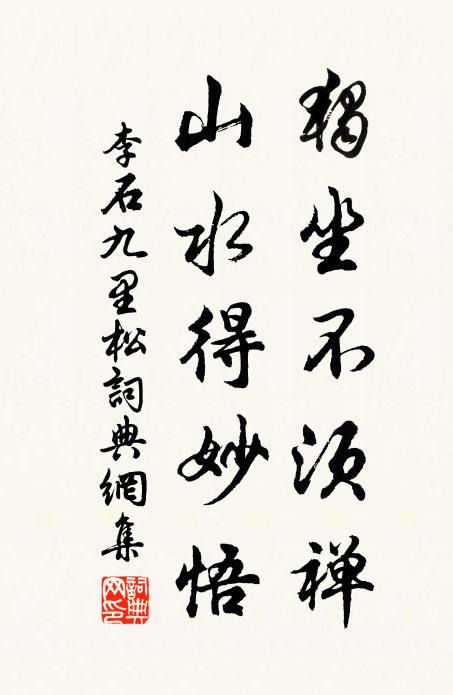 獨坐不須禅
山水得妙悟
李石九里松詞典網集
詞典網印